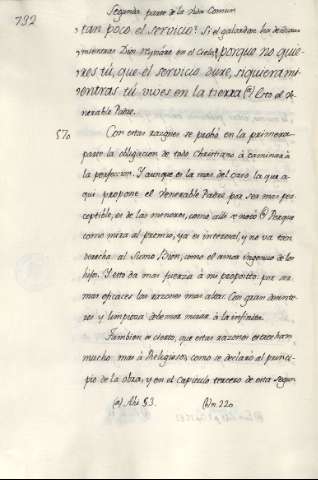 792
Segunda parte de la vida Comun
tan poco el servicio? Si el galardon ha de durar
mientras Dios reynáre en el Cielo, porque no quie-
res tú, que el servicio dure, siquiera mi-
entras tú vives en la tierra (a) Esto el Ve-
nerable Padre.
570 Con estas razones se probó en la primera
parte la obligacion de todo Christiano á caminar á
la perfeccion. Y aunque es la mas del caso la que a-
qui propone el Venerable Padre por ser mas per-
ceptible, es de las menores, como alli se notó (b) Porque
como mira al premio, ya es interesal, y no va tan
derecha al Sumo Bien, como el amor ingenuo de los
hijos. Y esto da mas fuerza á mi proposito por ser
mas eficaces las razones mas altas. Con gran desinte-
res y limpieza debemos mirar á lo infinito.
Tambien es cierto, que estas razones estrechan
mucho mas á Religiosos, como se declaró al princi-
pio de la obra, y en el Capitulo tercero de esta Segun-
(a) Ahi §3. (b) n. 220.